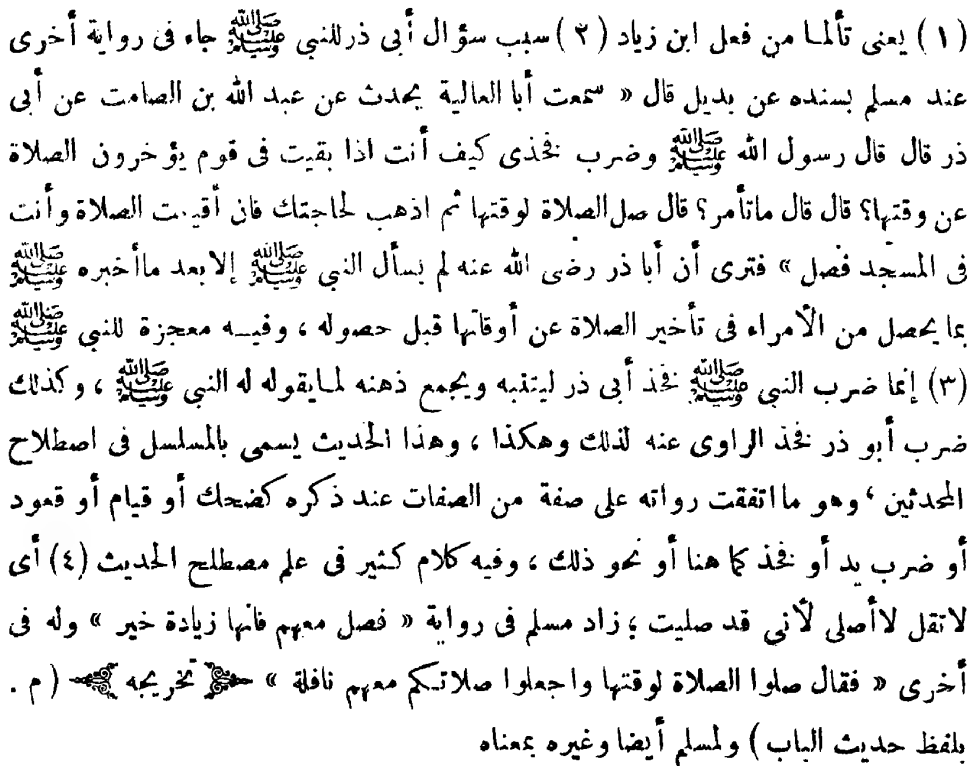 (١) يعنى تألمـا من فعل ابن زياد (٢) سبب سؤال أبى ذر للنبي ﷺ جاء فى رواية أخرى
عند مسلم بسنده عن بديل قال « سمعت أبا العالية يحدث عن عبد الله بن الصامت عن أبى
ذر قال قال رسول الله ﷺ وضرب فخذى كيف أنت اذا بقيت فى قوم يؤخرون الصلاة
عن وقتها؟ قال قال ماتأمر؟ قال صل الصلاة لوقتها ثم اذهب لحاجتك فان أقيمت الصلاة وأنت
فى المسجد فصل » فترى أن أبا ذر رضى الله عنه لم يسأل النبي ﷺ إلا بعد ماأخبره ﷺ
بما يحصل من الأمراء فى تأخير الصلاة عن أوقاتها قبل حصوله ، وفيـه معجزة للنبي ﷺ
(٣) إنما ضرب النبي ﷺ فخذ أبى ذر ليتنبه ويجمع ذهنه لمـايقوله له النبي ﷺ ، وكذلك
ضرب أبو ذر فخذ الراوى عنه لذلك وهكذا ، وهذا الحديث يسمى بالمسلسل فى اصطلاح
المحدثين ، وهو مااتفقت رواته على صفة من الصفات عند ذكره كضحك أو قيام أو قعود
أو ضرب يد أو فخذ كما هنا أو نحو ذلك ، وفيه كلام كثير فى علم مصطلح الحديث (٤) أى
لاتقل لاأصلى لأنى قد صليت ؛ زاد مسلم فى رواية « فصل معهم فانها زيادة خير » وله فى
أخرى « فقال صلوا الصلاة لوقتها واجعلوا صلاتـكم معهم نافلة » تخريجه ( م .
بلفظ حديث الباب ) ولمسلم أيضا وغيره بمعناه